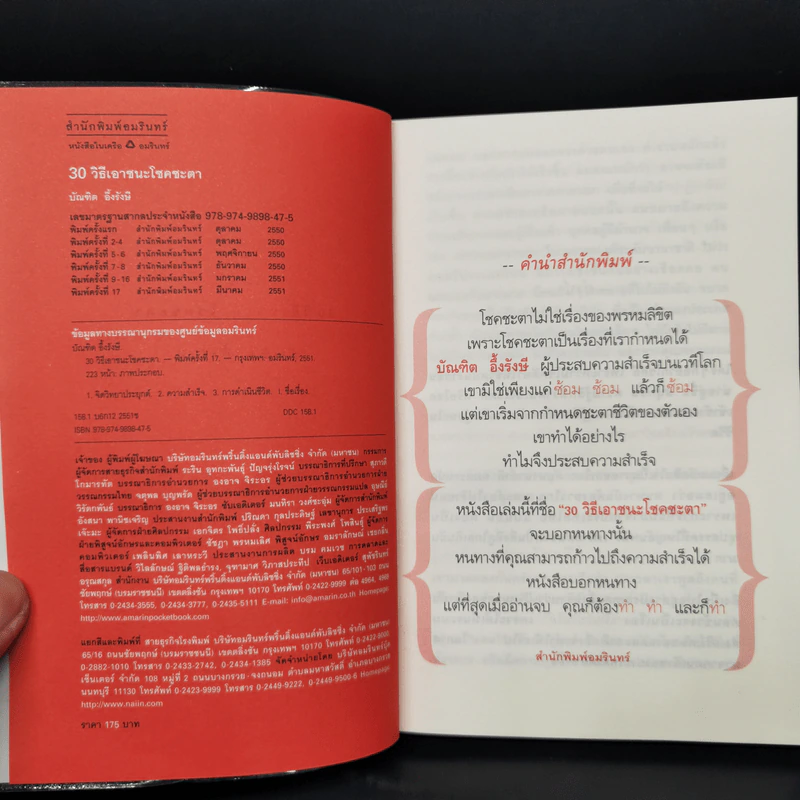 สำนักพิมพ์อมรินทร์
หนังสือในเครือ อมรินทร์
30 วิธีเอาชนะโชคชะตา
บัณฑิต อึ้งรังษี
เลขมาตรฐานสากลประจำหนังสือ 978-974-9898-47-5
พิมพ์ครั้งแรก สำนักพิมพ์อมรินทร์ ตุลาคม 2550
พิมพ์ครั้งที่ 2-4 สำนักพิมพ์อมรินทร์ ตุลาคม 2550
พิมพ์ครั้งที่ 5-6 สำนักพิมพ์อมรินทร์ พฤศจิกายน 2550
พิมพ์ครั้งที่ 7-8 สำนักพิมพ์อมรินทร์ ธันวาคม 2550
พิมพ์ครั้งที่ 9-16 สำนักพิมพ์อมรินทร์ มกราคม 2551
พิมพ์ครั้งที่ 17 สำนักพิมพ์อมรินทร์ มีนาคม 2551
ข้อมูลทางบรรณานุกรมของศูนย์ข้อมูลอมรินทร์
บัณฑิต อึ้งรังษี.
30 วิธีเอาชนะโชคชะตา. — พิมพ์ครั้งที่ 17. — กรุงเทพฯ : อมรินทร์, 2551.
223 หน้า. ภาพประกอบ.
1. จิตวิทยาประยุกต์. 2. ความสำเร็จ. 3. การดำเนินชีวิต. I. ชื่อเรื่อง.
158.1 บ6ท12 2551ช DDC 158.1
ISBN 978-974-9898-47-5
เจ้าของ ผู้พิมพ์ผู้โฆษณา บริษัทอมรินทร์พริ้นติ้งแอนด์พับลิชชิ่ง จำกัด (มหาชน) กรรมการ
ผู้จัดการสายธุรกิจสำนักพิมพ์ ระริน อุทกะพันธุ์ ปัญจรุ่งโรจน์ บรรณาธิการที่ปรึกษา สุภาวดี
โกมารทัต บรรณาธิการอำนวยการ องอาจ จิระอร ผู้ช่วยบรรณาธิการอำนวยการฝ่าย
วรรณกรรมไทย จตุพล บุญพรัด ผู้ช่วยบรรณาธิการอำนวยการฝ่ายวรรณกรรมแปล
วิรัตกพันธ์ บรรณาธิการ องอาจ จิระอร ซับเอดิเตอร์ มนทิรา วงศ์ชะอุ่ม ผู้จัดการสำนักพิมพ์
อังสนา พานิชเจริญ ประสานงานสำนักพิมพ์ ปริณดา กุลประดิษฐ์ เลขานุการ
ผู้จัดการฝ่ายศิลปกรรม เอกจิตร โพธิ์ปลั่ง ศิลปกรรม พีระพงศ์ โพสินธุ์ ผู้จัดการ
ฝ่ายพิสูจน์อักษรและคอมพิวเตอร์ ชัชฎา พรหมเลิศ พิสูจน์อักษร อมราลักษณ์
คอมพิวเตอร์ เพลินพิศ ประสานงานการผลิต
สื่อสารแบรนด์ วิไลลักษณ์ เว็บเอดิเตอร์
อรุณสกุล สำนักงาน บริษัทอมรินทร์พริ้นติ้งแอนด์พับลิชชิ่ง จำกัด (มหาชน) 65/101-103 ถนน
ชัยพฤกษ์ (บรมราชชนนี) เขตตลิ่งชัน กรุงเทพฯ 10170 โทรศัพท์ 0-2422-9999 ต่อ 4964,
โทรสาร 0-2434-3555, 0-2434-3777, 0-2435-5111 E-mail: info@amarin.co.th Homepage:
http://www.amarinpocketbook.com
แยกสีและพิมพ์ที่ สายธุรกิจโรงพิมพ์ บริษัทอมรินทร์พริ้นติ้งแอนด์พับลิชชิ่ง จำกัด (มหาชน)
65/16 ถนนชัยพฤกษ์ (บรมราชชนนี) เขตตลิ่งชัน กรุงเทพฯ 10170 โทรศัพท์ 0-2422-9000,
0-2882-1010 โทรสาร 0-2433-2742, 0-2434-1385 จัดจำหน่ายโดย บริษัทอมรินทร์บุ๊ค
เซ็นเตอร์ จำกัด 108 หมู่ที่ 2 ถนนบางกรวย-จงถนอม ตำบลมหาสวัสดิ์ อำเภอบางกรวย
นนทบุรี 11130 โทรศัพท์ 0-2423-9999 โทรสาร 0-2449-9222, 0-2449-9500-6 Homepage:
http://www.naiin.com
ราคา 175 บาท
-- คำนำสำนักพิมพ์ --
โชคชะตาไม่ใช่เรื่องของพรหมลิขิต
เพราะโชคชะตาเป็นเรื่องที่เรากำหนดได้
บัณฑิต อึ้งรังษี ผู้ประสบความสำเร็จบนเวทีโลก
เขามิใช่เพียงแค่ ซ้อม ซ้อม แล้วก็ ซ้อม
แต่เขาเริ่มจากกำหนดชะตาชีวิตของตัวเอง
เขาทำได้อย่างไร
ทำไมจึงประสบความสำเร็จ
หนังสือเล่มนี้ที่ชื่อ "30 วิธีเอาชนะโชคชะตา"
จะบอกหนทางนั้น
หนทางที่คุณสามารถก้าวไปถึงความสำเร็จได้
หนังสือบอกหนทาง
แต่ที่สุดเมื่ออ่านจบ คุณก็ต้องทำ ทำ และก็ทำ
สำนักพิมพ์อมรินทร์